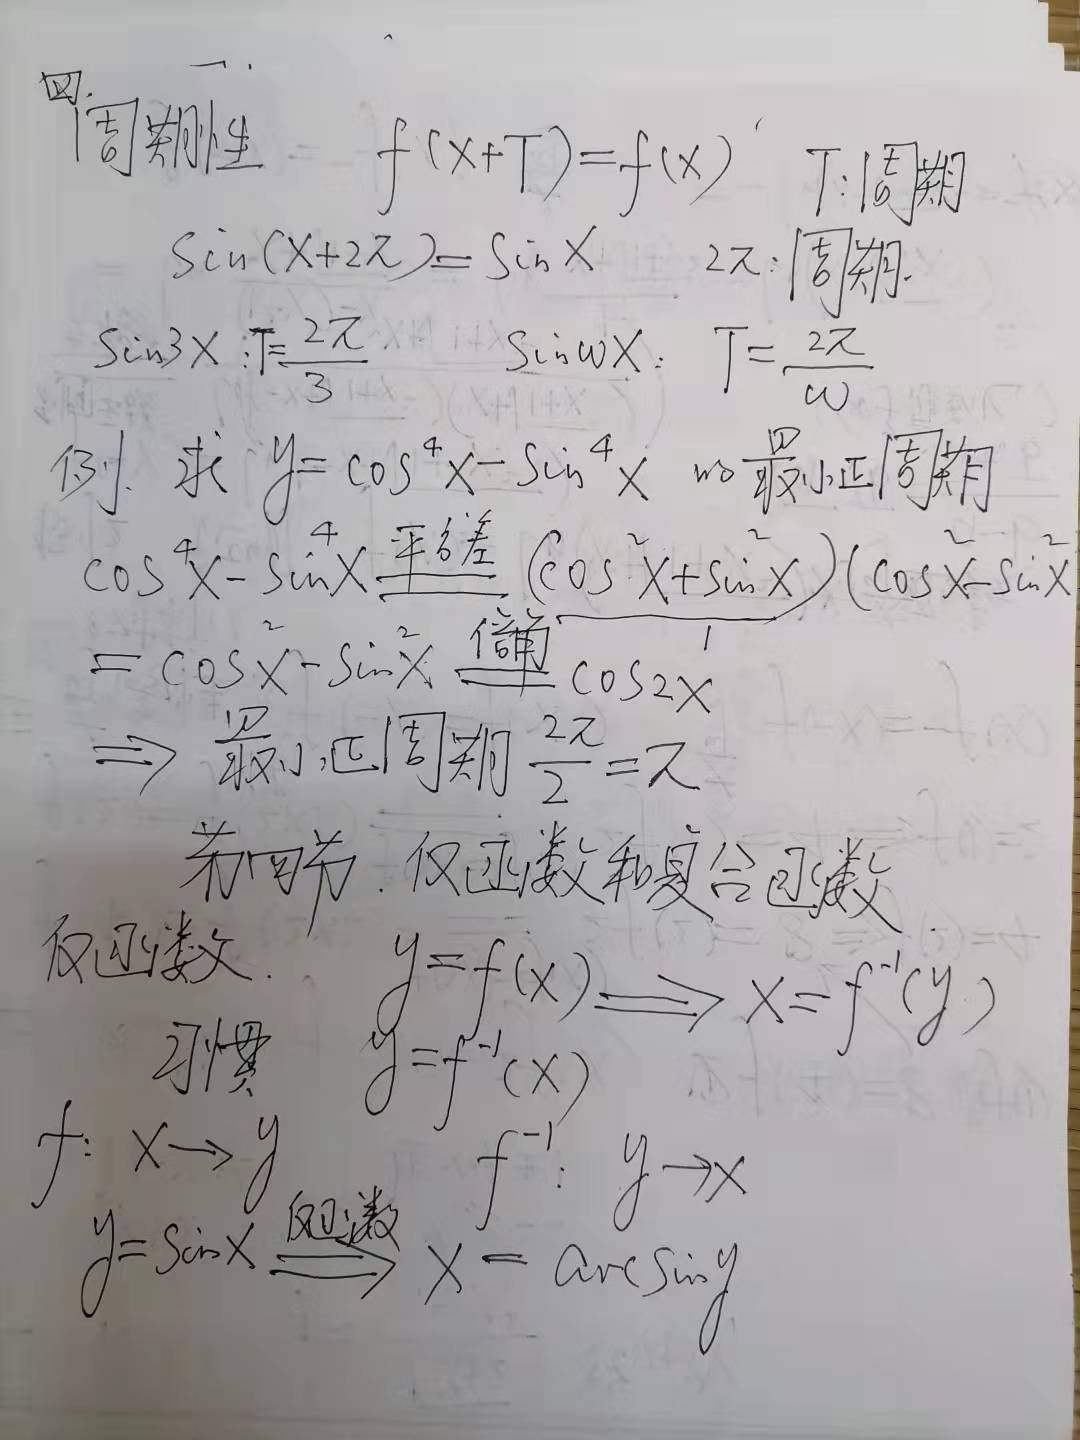 四.
周期性 f(x+T)=f(x) T:周期
sin(x+2π)=sinx 2π:周期.
sin3x:T=2π/3 sinωx: T=2π/ω
例. 求 y=cos⁴x-sin⁴x 的最小正周期
cos⁴x-sin⁴x 平方差== (cos²x+sin²x)(cos²x-sin²x
1
=cos²x-sin²x 倍角== cos2x
⇒ 最小正周期 2π/2=π
第四节. 反函数和复合函数
反函数. y=f(x) ⇒ x=f⁻¹(y)
习惯 y=f⁻¹(x)
f: x→y f⁻¹: y→x
y=sinx 反函数⇒ x=arcsiny